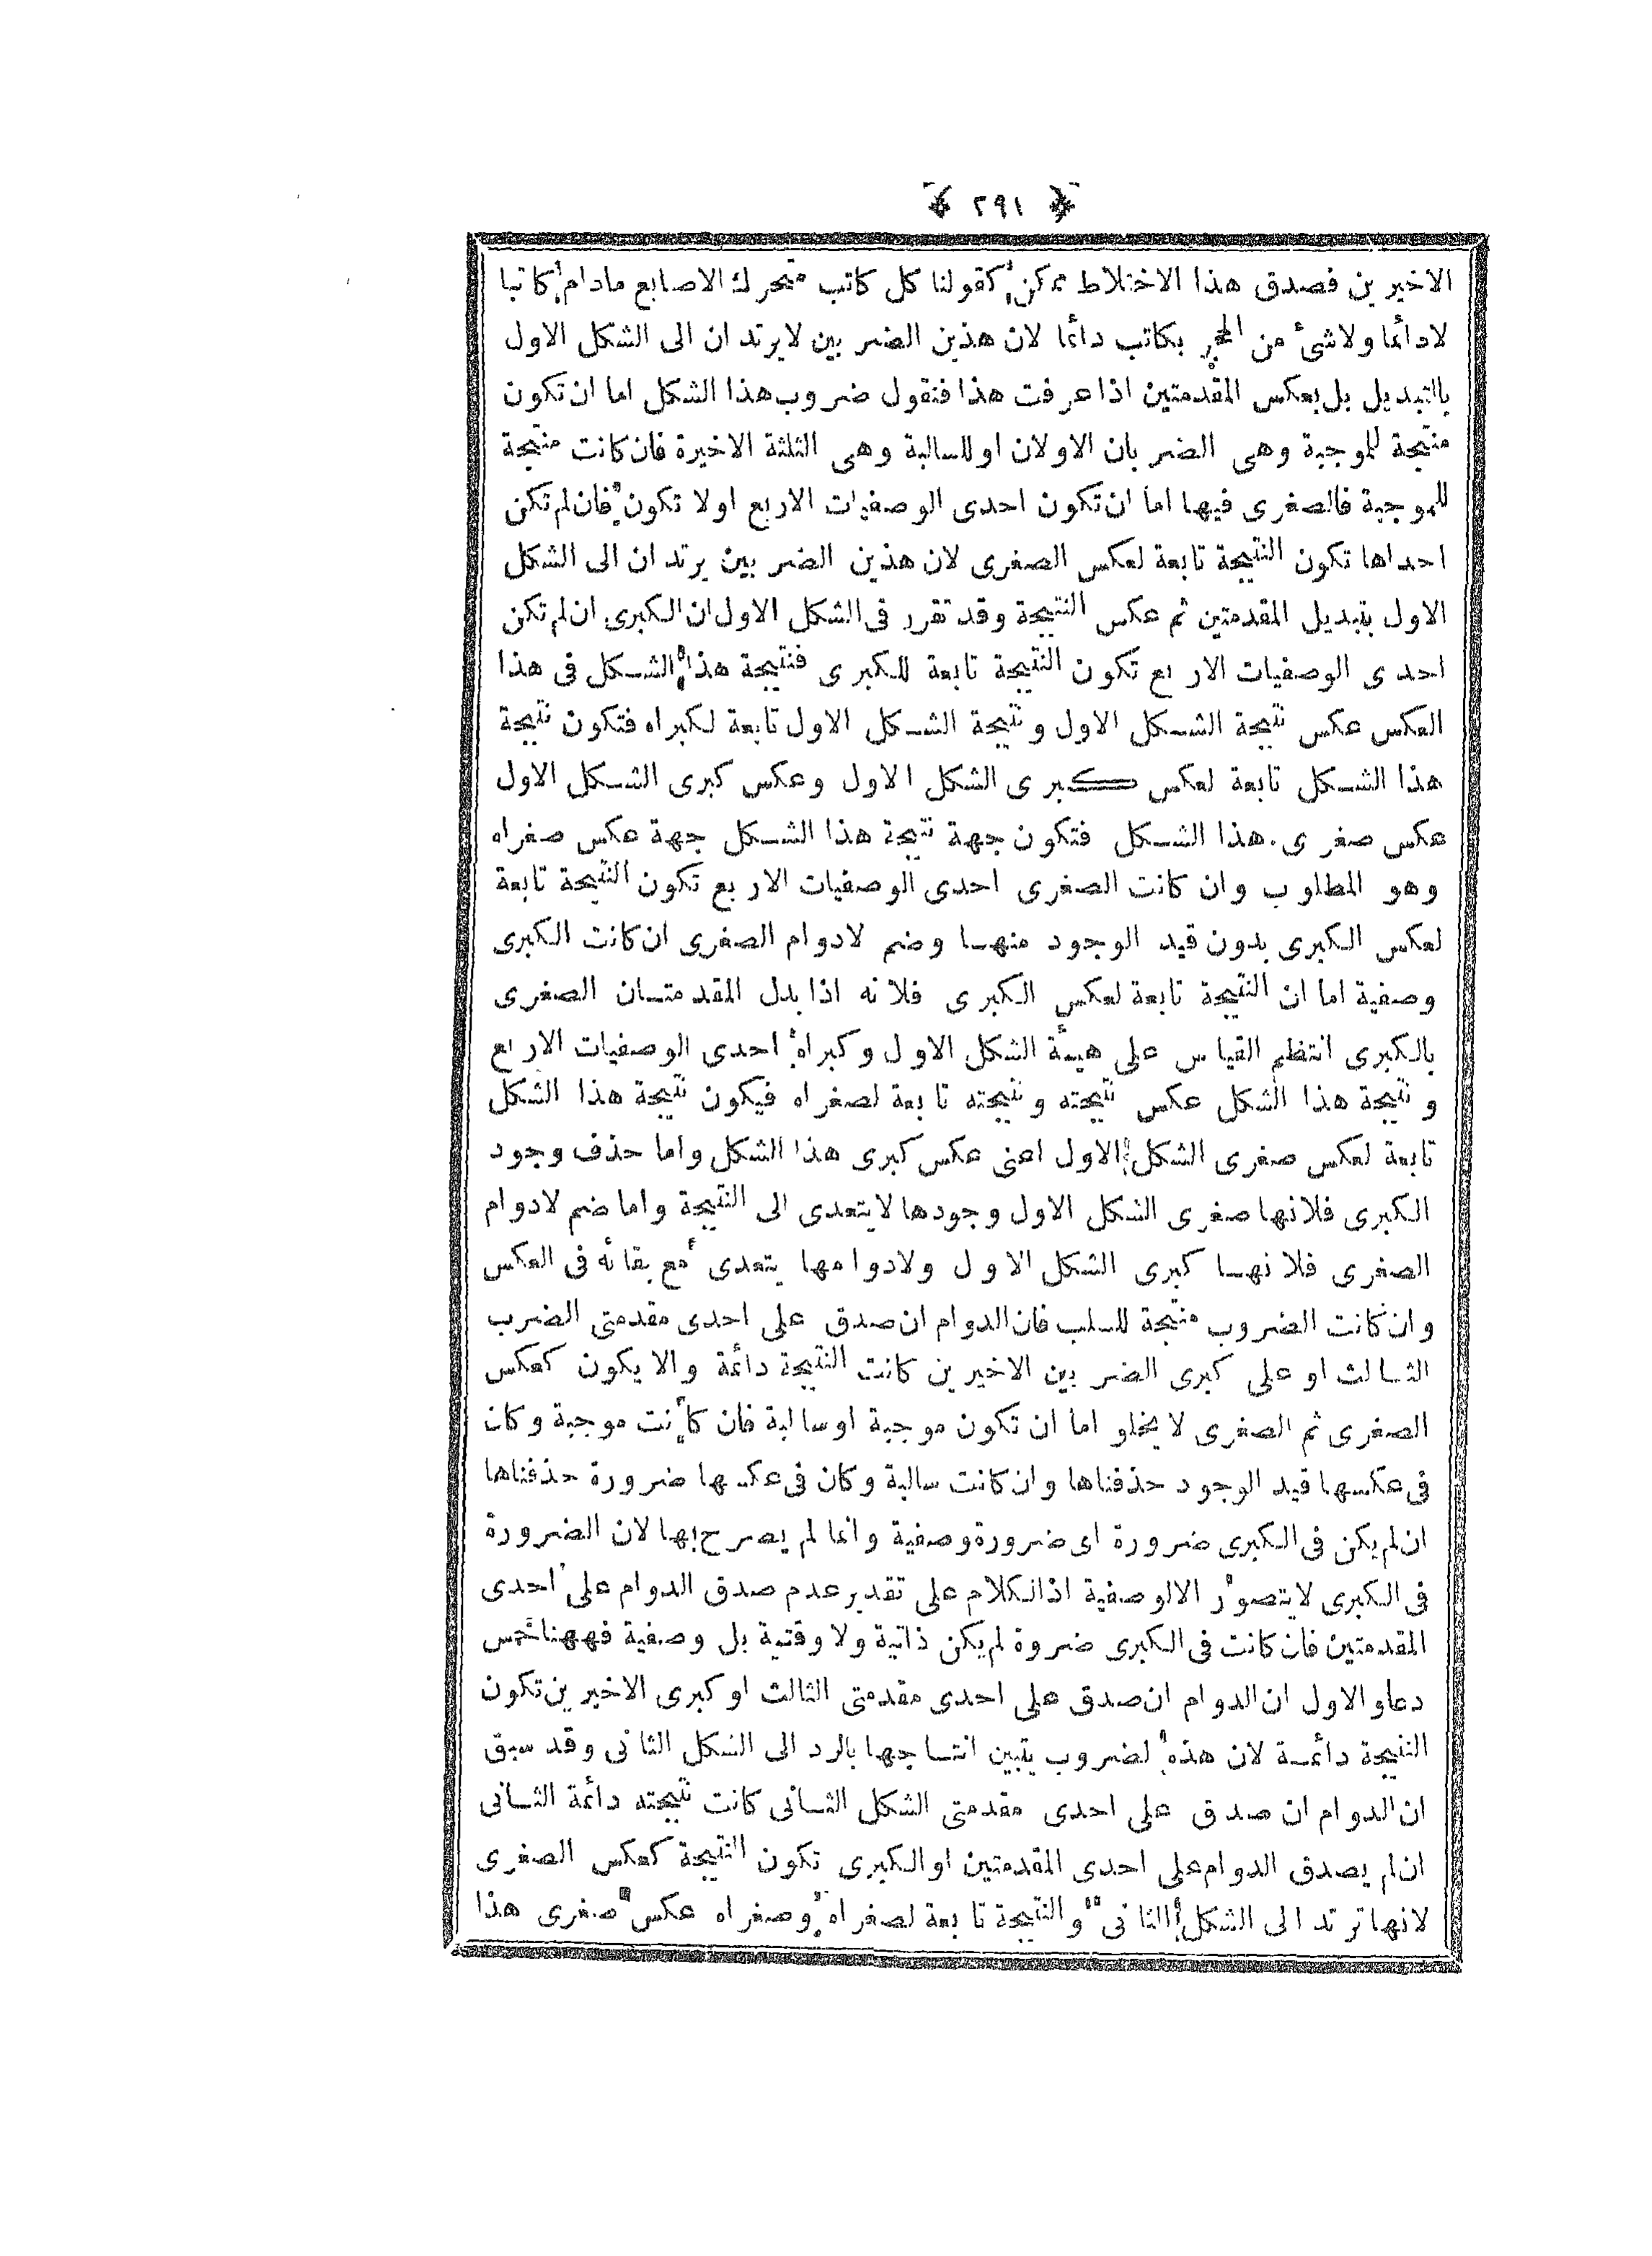 ٢٩١
الاخيرين فصدق هذا الاختلاط ممكن كقولنا كل كاتب متحرك الاصابع مادام كاتبا
لادائما ولاشئ من الحجر بكاتب دائما لان هذين الضربين لايرتدان الى الشكل الاول
بالتبديل بل بعكس المقدمتين اذا عرفت هذا فنقول ضروب هذا الشكل اما ان تكون
منتجة للموجبة وهى الضربان الاولان او للسالبة وهى الثلثة الاخيرة فان كانت منتجة
للموجبة فالصغرى فيها اما ان تكون احدى الوصفيات الاربع اولا تكون فان لم تكن
احداها تكون النتيجة تابعة لعكس الصغرى لان هذين الضربين يرتدان الى الشكل
الاول بتبديل المقدمتين ثم عكس النتيجة وقد تقرر فى الشكل الاول ان الكبرى ان لم تكن
احدى الوصفيات الاربع تكون النتيجة تابعة للكبرى فنتيجة هذا الشكل فى هذا
العكس عكس نتيجة الشكل الاول ونتيجة الشكل الاول تابعة لكبراه فتكون نتيجة
هذا الشكل تابعة لعكس كبرى الشكل الاول وعكس كبرى الشكل الاول
عكس صغرى هذا الشكل فتكون جهة نتيجة هذا الشكل جهة عكس صغراه
وهو المطلوب وان كانت الصغرى احدى الوصفيات الاربع تكون النتيجة تابعة
لعكس الكبرى بدون قيد الوجود منهما وضم لادوام الصغرى ان كانت الكبرى
وصفية اما ان النتيجة تابعة لعكس الكبرى فلانه اذا بدل المقدمتان الصغرى
بالكبرى انتظم القياس على هيئة الشكل الاول وكبراه احدى الوصفيات الاربع
ونتيجة هذا الشكل عكس نتيجته ونتيجته تابعة لصغراه فيكون نتيجة هذا الشكل
تابعة لعكس صغرى الشكل الاول اعنى عكس كبرى هذا الشكل واما حذف وجود
الكبرى فلانها صغرى الشكل الاول وجودها لايتعدى الى النتيجة واما ضم لادوام
الصغرى فلانها كبرى الشكل الاول ولادوامها يتعدى مع بقائه فى العكس
وان كانت الضروب منتجة للسلب فان الدوام ان صدق على احدى مقدمتى الضرب
الثالث او على كبرى الضربين الاخيرين كانت النتيجة دائمة والا يكون كعكس
الصغرى ثم الصغرى لا يخلو اما ان تكون موجبة او سالبة فان كانت موجبة وكان
فى عكسها قيد الوجود حذفناها وان كانت سالبة وكان فى عكسها ضرورة حذفناها
ان لم يكن فى الكبرى ضرورة اى ضرورة وصفية وانما لم يصرح بها لان الضرورة
فى الكبرى لايتصور الا الوصفية اذ الكلام على تقدير عدم صدق الدوام على احدى
المقدمتين فان كانت فى الكبرى ضروة لم يكن ذاتية ولا وقتية بل وصفية فههنا خمس
دعاو الاول ان الدوام ان صدق على احدى مقدمتى الثالث او كبرى الاخيرين تكون
النتيجة دائمة لان هذه لضروب يتبين انتاجها بالرد الى الشكل الثانى وقد سبق
ان الدوام ان صدق على احدى مقدمتى الشكل الثانى كانت نتيجته دائمة الثانى
ان لم يصدق الدوام على احدى المقدمتين او الكبرى تكون النتيجة كعكس الصغرى
لانها ترتد الى الشكل الثانى والنتيجة تابعة لصغراه وصغراه عكس صغرى هذا